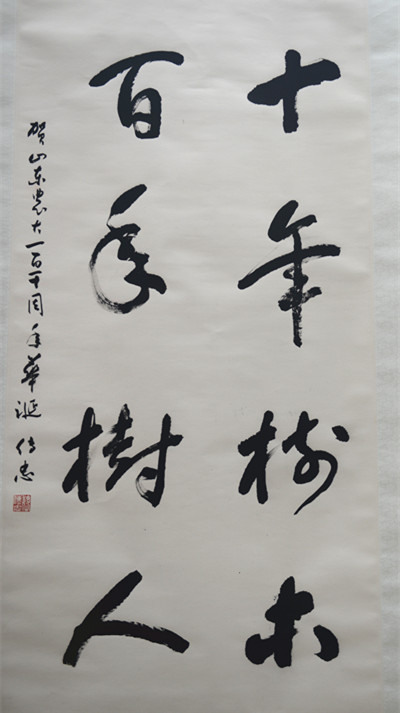 十年树木
百年樹人
贺山东農大一百一十周年華诞 传忠